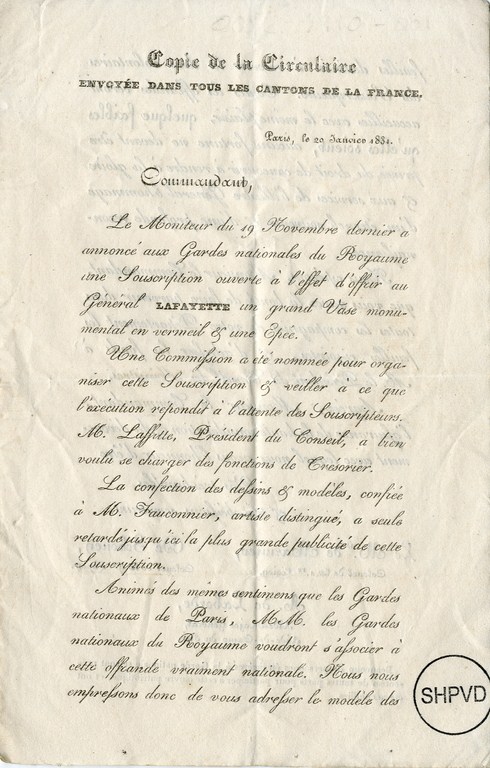 Copie de la Circulaire
ENVOYÉE DANS TOUS LES CANTONS DE LA FRANCE.
Paris, le 20 Janvier 1831.
Commandant,
Le Moniteur du 19 Novembre dernier a
annoncé aux Gardes nationales du Royaume
une Souscription ouverte à l'effet d'offrir au
Général LAFAYETTE un grand Vase monu-
mental en vermeil & une Epée.
Une Commission a été nommée pour orga-
niser cette Souscription & veiller à ce que
l'exécution répondit à l'attente des Souscripteurs.
M. Laffitte, Président du Conseil, a bien
voulu se charger des fonctions de Trésorier.
La confection des dessins & modèles, confiée
à M. Fauconnier, artiste distingué, a seule
retardé jusqu'ici la plus grande publicité de cette
Souscription.
Animés des mêmes sentimens que les Gardes
nationaux de Paris, MM. les Gardes
nationaux du Royaume voudront s'associer à
cette offrande vraiment nationale. Nous nous
empressons donc de vous adresser le modèle des
SHPVD